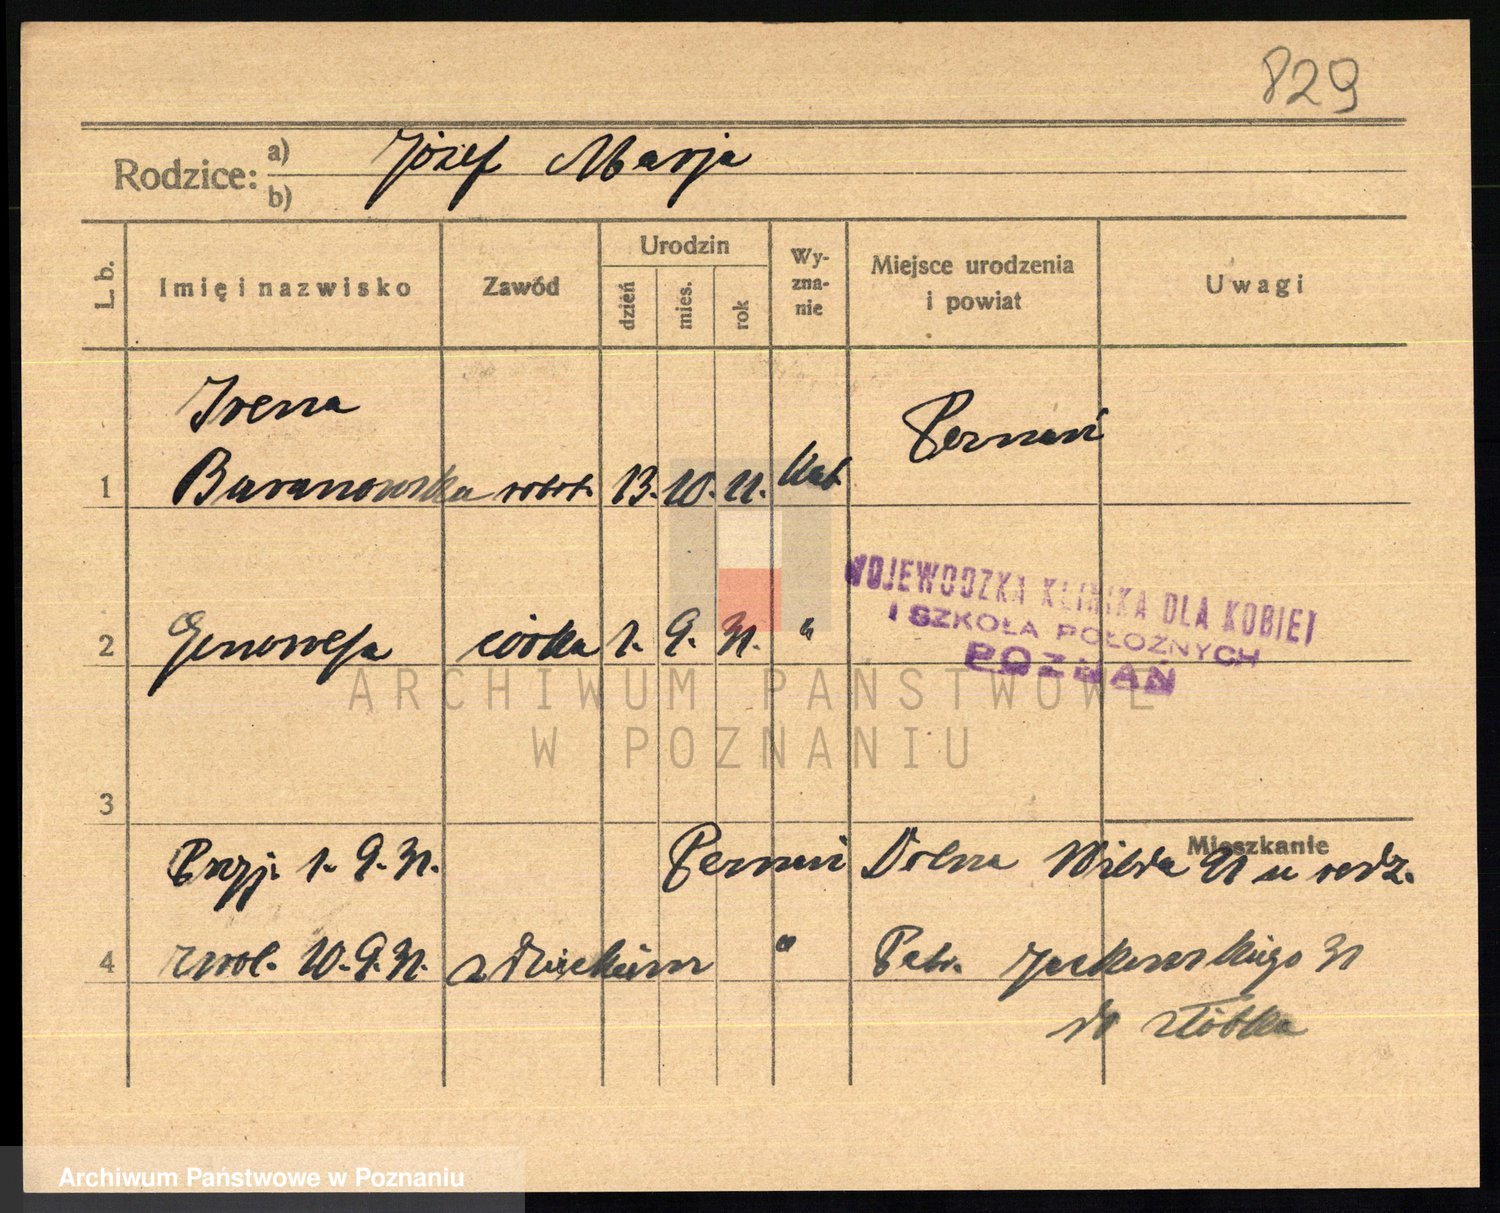 829
Rodzice: a) b) Józef Marja
L. b. Imię i nazwisko Zawód Urodzin dzień mies. rok Wy-zna-nie Miejsce urodzenia i powiat Uwagi
Irena
1 Baranowska robot. 13. 10. 11. kat. Poznań
WOJEWODZKA KLINIKA DLA KOBIET
I SZKOŁA POŁOŻNYCH
POZNAŃ
2 Genowefa córka 1. 9. 31. "
ARCHIWUM PAŃSTWOWE
W POZNANIU
3
Mieszkanie
Przyj. 1. 9. 31. Poznań Dolna Wilda 91 u rodz.
4 zwol. 10. 9. 31. z dzieckiem " Jackowskiego 31
do żłóbka
Archiwum Państwowe w Poznaniu